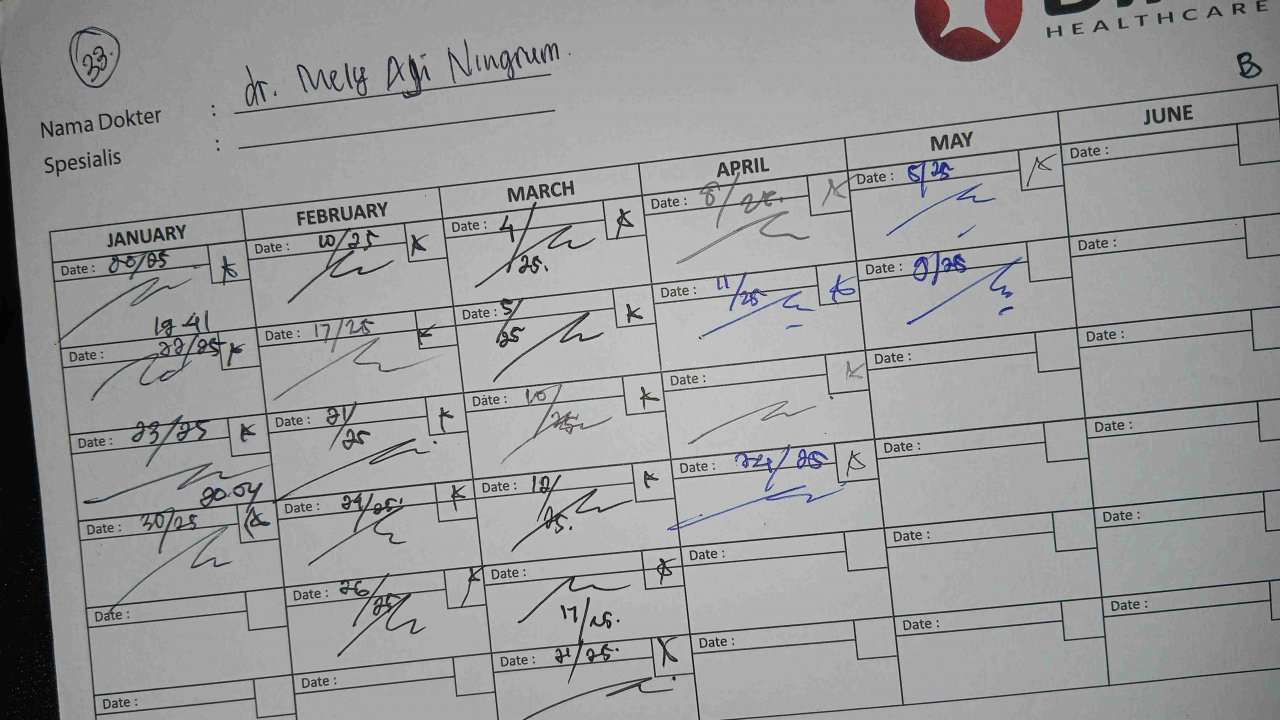 33.
HEALTHCARE
B
Nama Dokter : dr. Mely Agi Ningrum.
Spesialis :
JANUARY FEBRUARY MARCH APRIL MAY JUNE
Date : 20/25 Date : 10/25 Date : 4/25. Date : 8/25. Date : 5/25 Date :
19 41
Date : 22/25 Date : 17/25 Date : 5/25 Date : 11/25 Date : 9/25 Date :
Date : 23/25 Date : 21/25 Date : 10/25 Date : Date : Date :
20.04
Date : 30/25 Date : 24/25 Date : 12/25. Date : 24/25 Date : Date :
Date : Date : 26/25 Date : 17/25. Date : Date : Date :
Date : Date : Date : 21/25. Date : Date : Date :